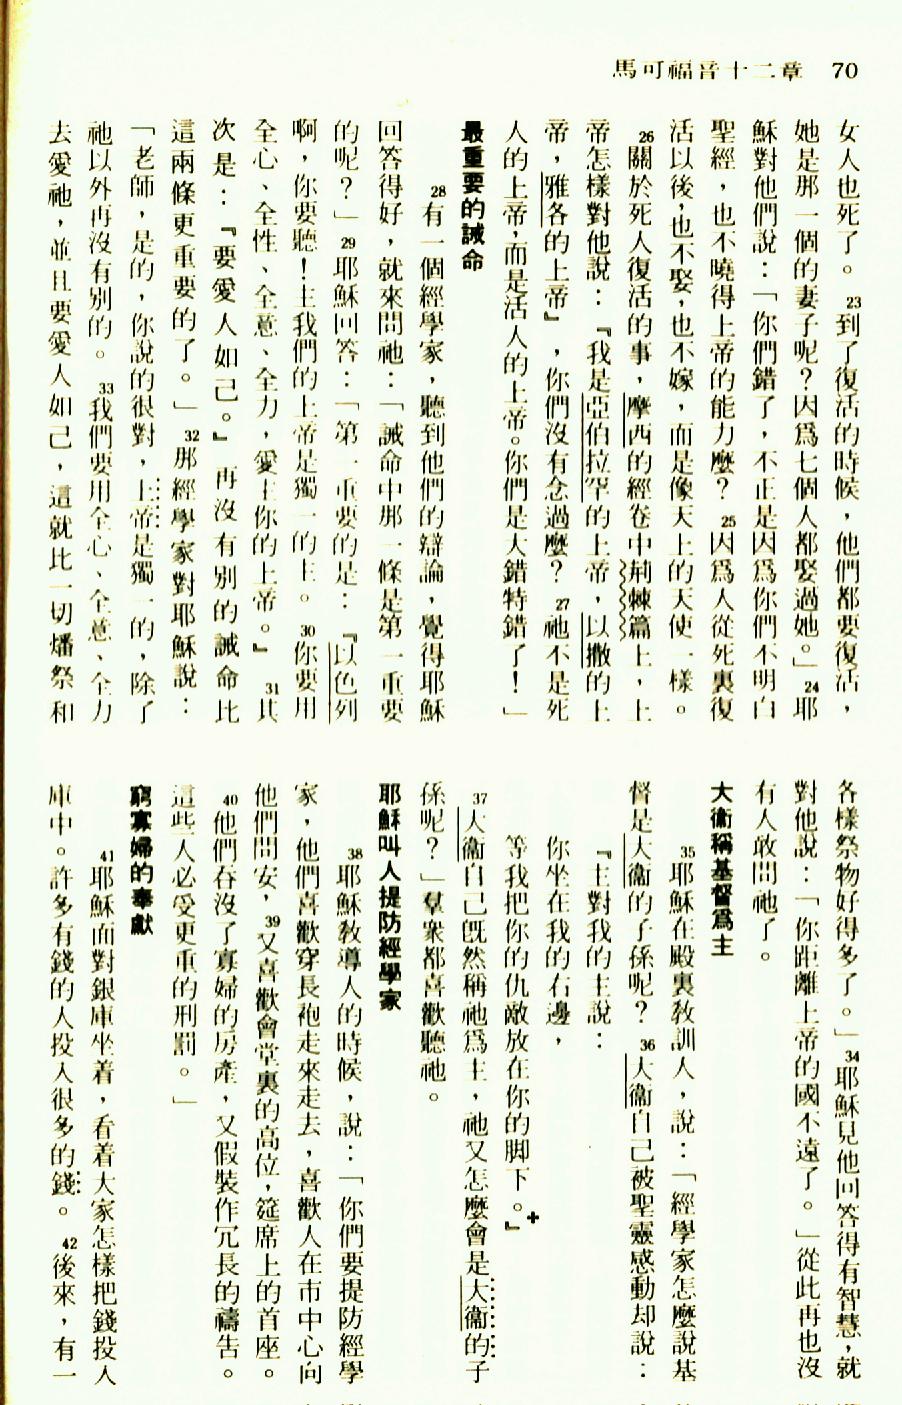 馬可福音十二章 70
女人也死了。23到了復活的時候，他們都要復活，
她是那一個的妻子呢？因爲七個人都娶過她。」24耶
穌對他們說：「你們錯了，不正是因爲你們不明白
聖經，也不曉得上帝的能力麼？25因爲人從死裏復
活以後，也不娶，也不嫁，而是像天上的天使一樣。
26關於死人復活的事，摩西的經卷中荊棘篇上，上
帝怎樣對他說：『我是亞伯拉罕的上帝，以撒的上
帝，雅各的上帝』，你們沒有念過麼？27祂不是死
人的上帝，而是活人的上帝。你們是大錯特錯了！」
最重要的誡命
28有一個經學家，聽到他們的辯論，覺得耶穌
回答得好，就來問祂：「誡命中那一條是第一重要
的呢？」29耶穌回答：「第一重要的是：『以色列
啊，你要聽！主我們的上帝是獨一的主。30你要用
全心、全性、全意、全力，愛主你的上帝。』31其
次是：『要愛人如己。』再沒有別的誡命比
這兩條更重要的了。」32那經學家對耶穌說：
「老師，是的，你說的很對，上帝是獨一的，除了
祂以外再沒有別的。33我們要用全心、全意、全力
去愛祂，並且要愛人如己，這就比一切燔祭和
各樣祭物好得多了。」34耶穌見他回答得有智慧，就
對他說：「你距離上帝的國不遠了。」從此再也沒
有人敢問祂了。
大衞稱基督爲主
35耶穌在殿裏敎訓人，說：「經學家怎麼說基
督是大衞的子孫呢？36大衞自己被聖靈感動却說：
『主對我的主說：
你坐在我的右邊，
等我把你的仇敵放在你的脚下。』+
37大衞自己旣然稱祂爲主，祂又怎麼會是大衞的子
孫呢？」羣衆都喜歡聽祂。
耶穌叫人提防經學家
38耶穌敎導人的時候，說：「你們要提防經學
家，他們喜歡穿長袍走來走去，喜歡人在市中心向
他們問安，39又喜歡會堂裏的高位，筵席上的首座。
40他們吞沒了寡婦的房產，又假裝作冗長的禱吿。
這些人必受更重的刑罰。」
窮寡婦的奉獻
41耶穌面對銀庫坐着，看着大家怎樣把錢投入
庫中。許多有錢的人投入很多的錢。42後來，有一